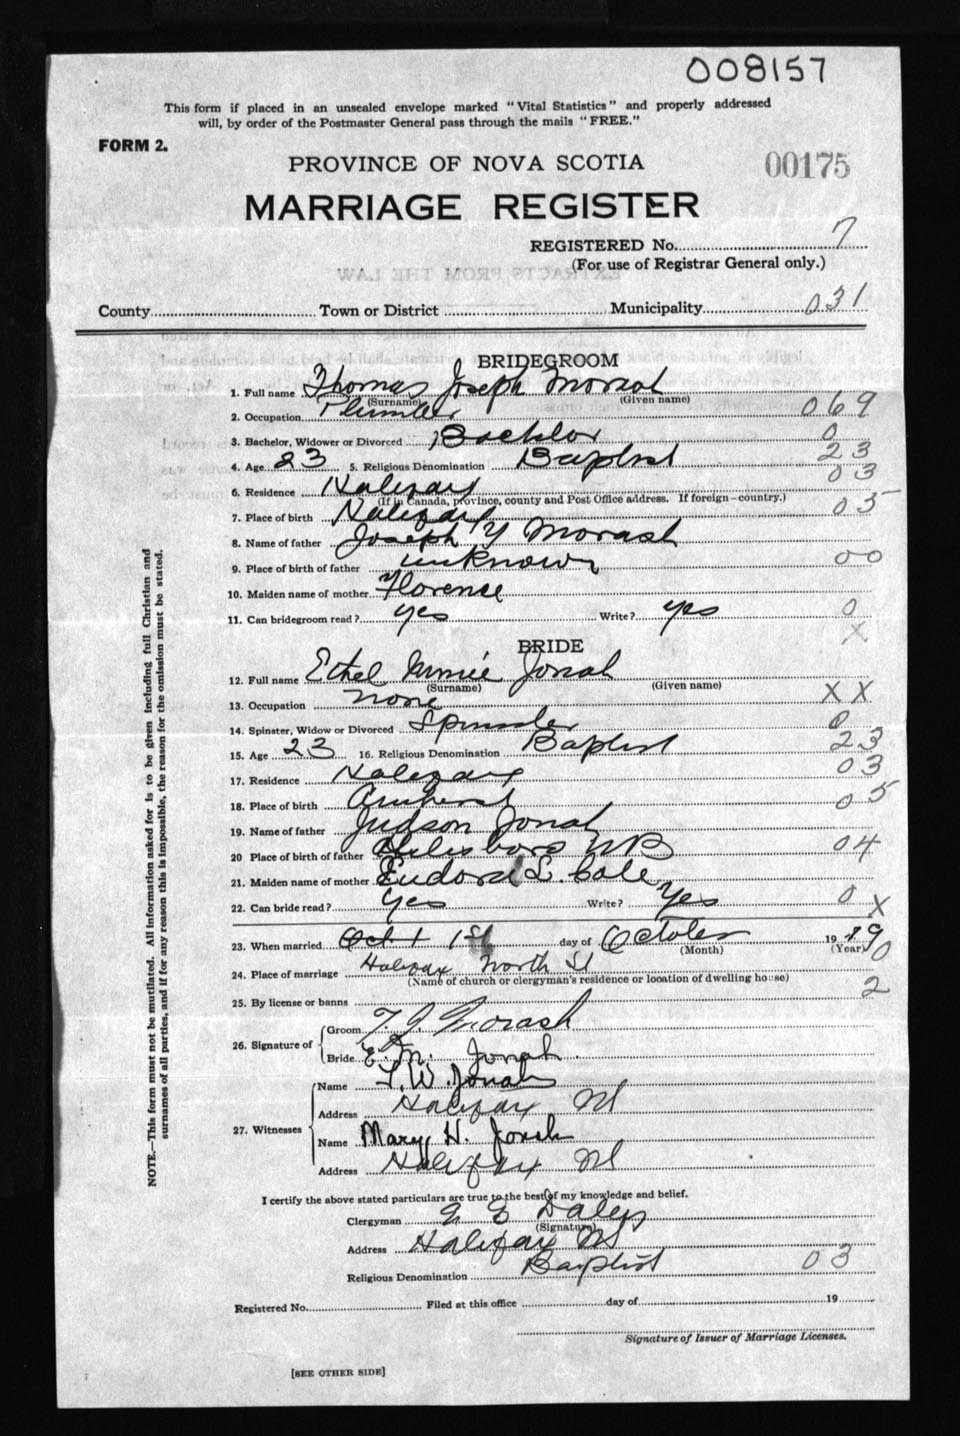 008157
This form if placed in an unsealed envelope marked "Vital Statistics" and properly addressed
will, by order of the Postmaster General pass through the mails "FREE."
FORM 2.
PROVINCE OF NOVA SCOTIA
00175
MARRIAGE REGISTER
REGISTERED No. 7
(For use of Registrar General only.)
County Town or District Municipality 031
BRIDEGROOM
1. Full name Thomas Joseph Morash
(Surname) (Given name)
2. Occupation Plumber 069
3. Bachelor, Widower or Divorced Bachlor 0
4. Age 23 5. Religious Denomination Baptist 23
6. Residence Halifax 03
(If in Canada, province, county and Post Office address. If foreign—country.)
7. Place of birth Halifax 05
8. Name of father Joseph Y Morash
9. Place of birth of father unknown 00
10. Maiden name of mother Florence
11. Can bridegroom read? yes Write? yes 0
X
BRIDE
12. Full name Ethel Minnie Jonah
(Surname) (Given name)
13. Occupation none XX
14. Spinster, Widow or Divorced Spinster 0
15. Age 23 16. Religious Denomination Baptist 23
17. Residence Halifax 03
18. Place of birth Amherst 05
19. Name of father Judson Jonah
20 Place of birth of father Hilsboro NB 04
21. Maiden name of mother Eudora L. Cole
22. Can bride read? yes Write? Yes 0 X
23. When married Oct 1 1st day of October 19 19
(Month) (Year) 0
24. Place of marriage Halifax North St
(Name of church or clergyman's residence or location of dwelling house) 2
25. By license or banns
26. Signature of Groom T. J. Morash
Bride E. M. Jonah
27. Witnesses Name T. W. Jonah
Address Halifax NS
Name Mary H. Jonah
Address Halifax NS
I certify the above stated particulars are true to the best of my knowledge and belief.
Clergyman Daley
(Signature)
Address Halifax NS
Religious Denomination Baptist 03
Registered No. Filed at this office day of 19
Signature of Issuer of Marriage Licenses.
[SEE OTHER SIDE]
NOTE.—This form must not be mutilated. All information asked for is to be given including full Christian and
surnames of all parties, and if for any reason this is impossible, the reason for the omission must be stated.